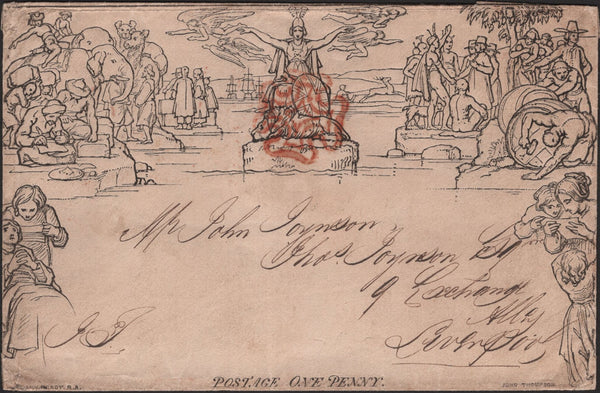 Mr John Joynson
Thos Joynson Esq
9 Exchange
Alley
Liverpool
J J
W. MULREADY. R.A.
POSTAGE ONE PENNY.
JOHN THOMPSON